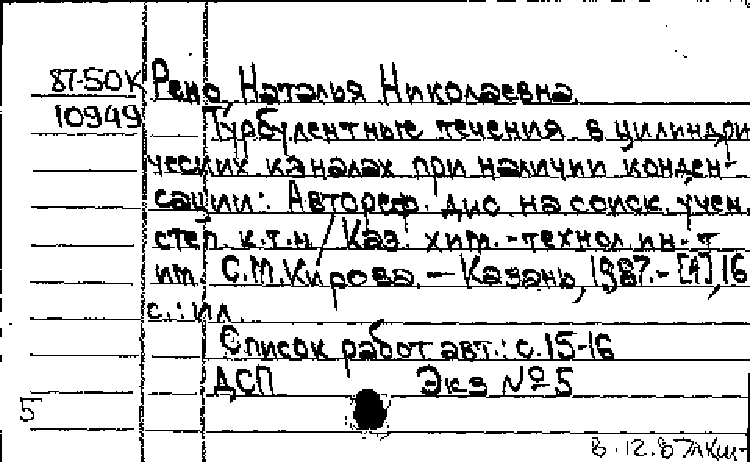 87-50к
10949
Рено, Наталья Николаевна.
Турбулентные течения в цилиндри
ческих каналах при наличии конден-
сации: Автореф. дис. на соиск. учен.
степ. к.т.н / Каз. хим.-технол ин-т
им. С.М.Кирова. — Казань, 1987.- [1], 16
с.: ил.
Список работ авт.: с.15-16
ДСП Экз №5
5
8.12.87